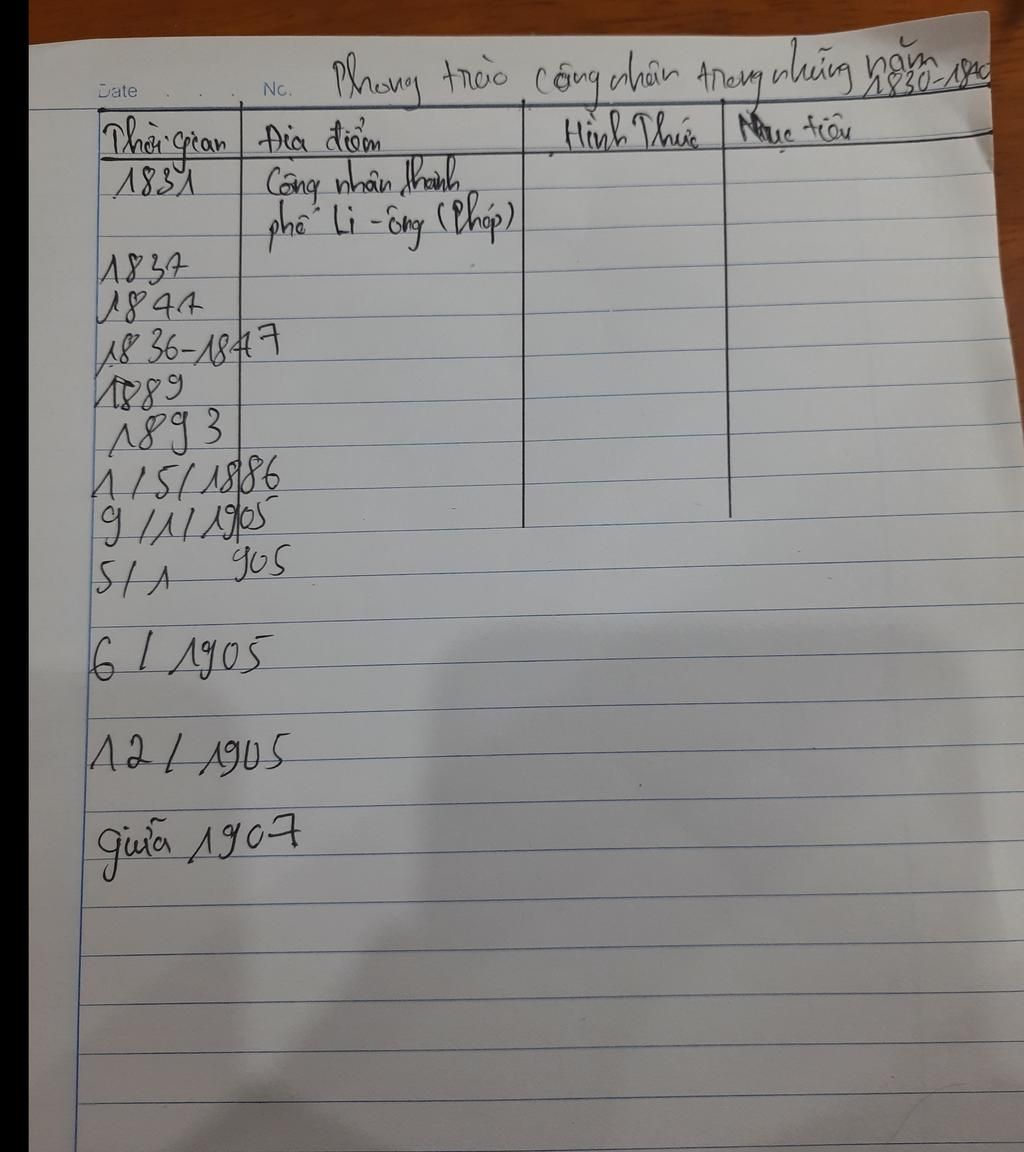 Date . . . No. Phong trào công nhân trong những năm
1830-1840
Thời gian Địa điểm Hình Thức Mục tiêu
1831 Công nhân thành
phố Li-ông (Pháp)
1837
1847
1836-1847
1889
1893
1/5/1886
9/1/1905
5/1 905
6/1905
12/1905
giữa 1907